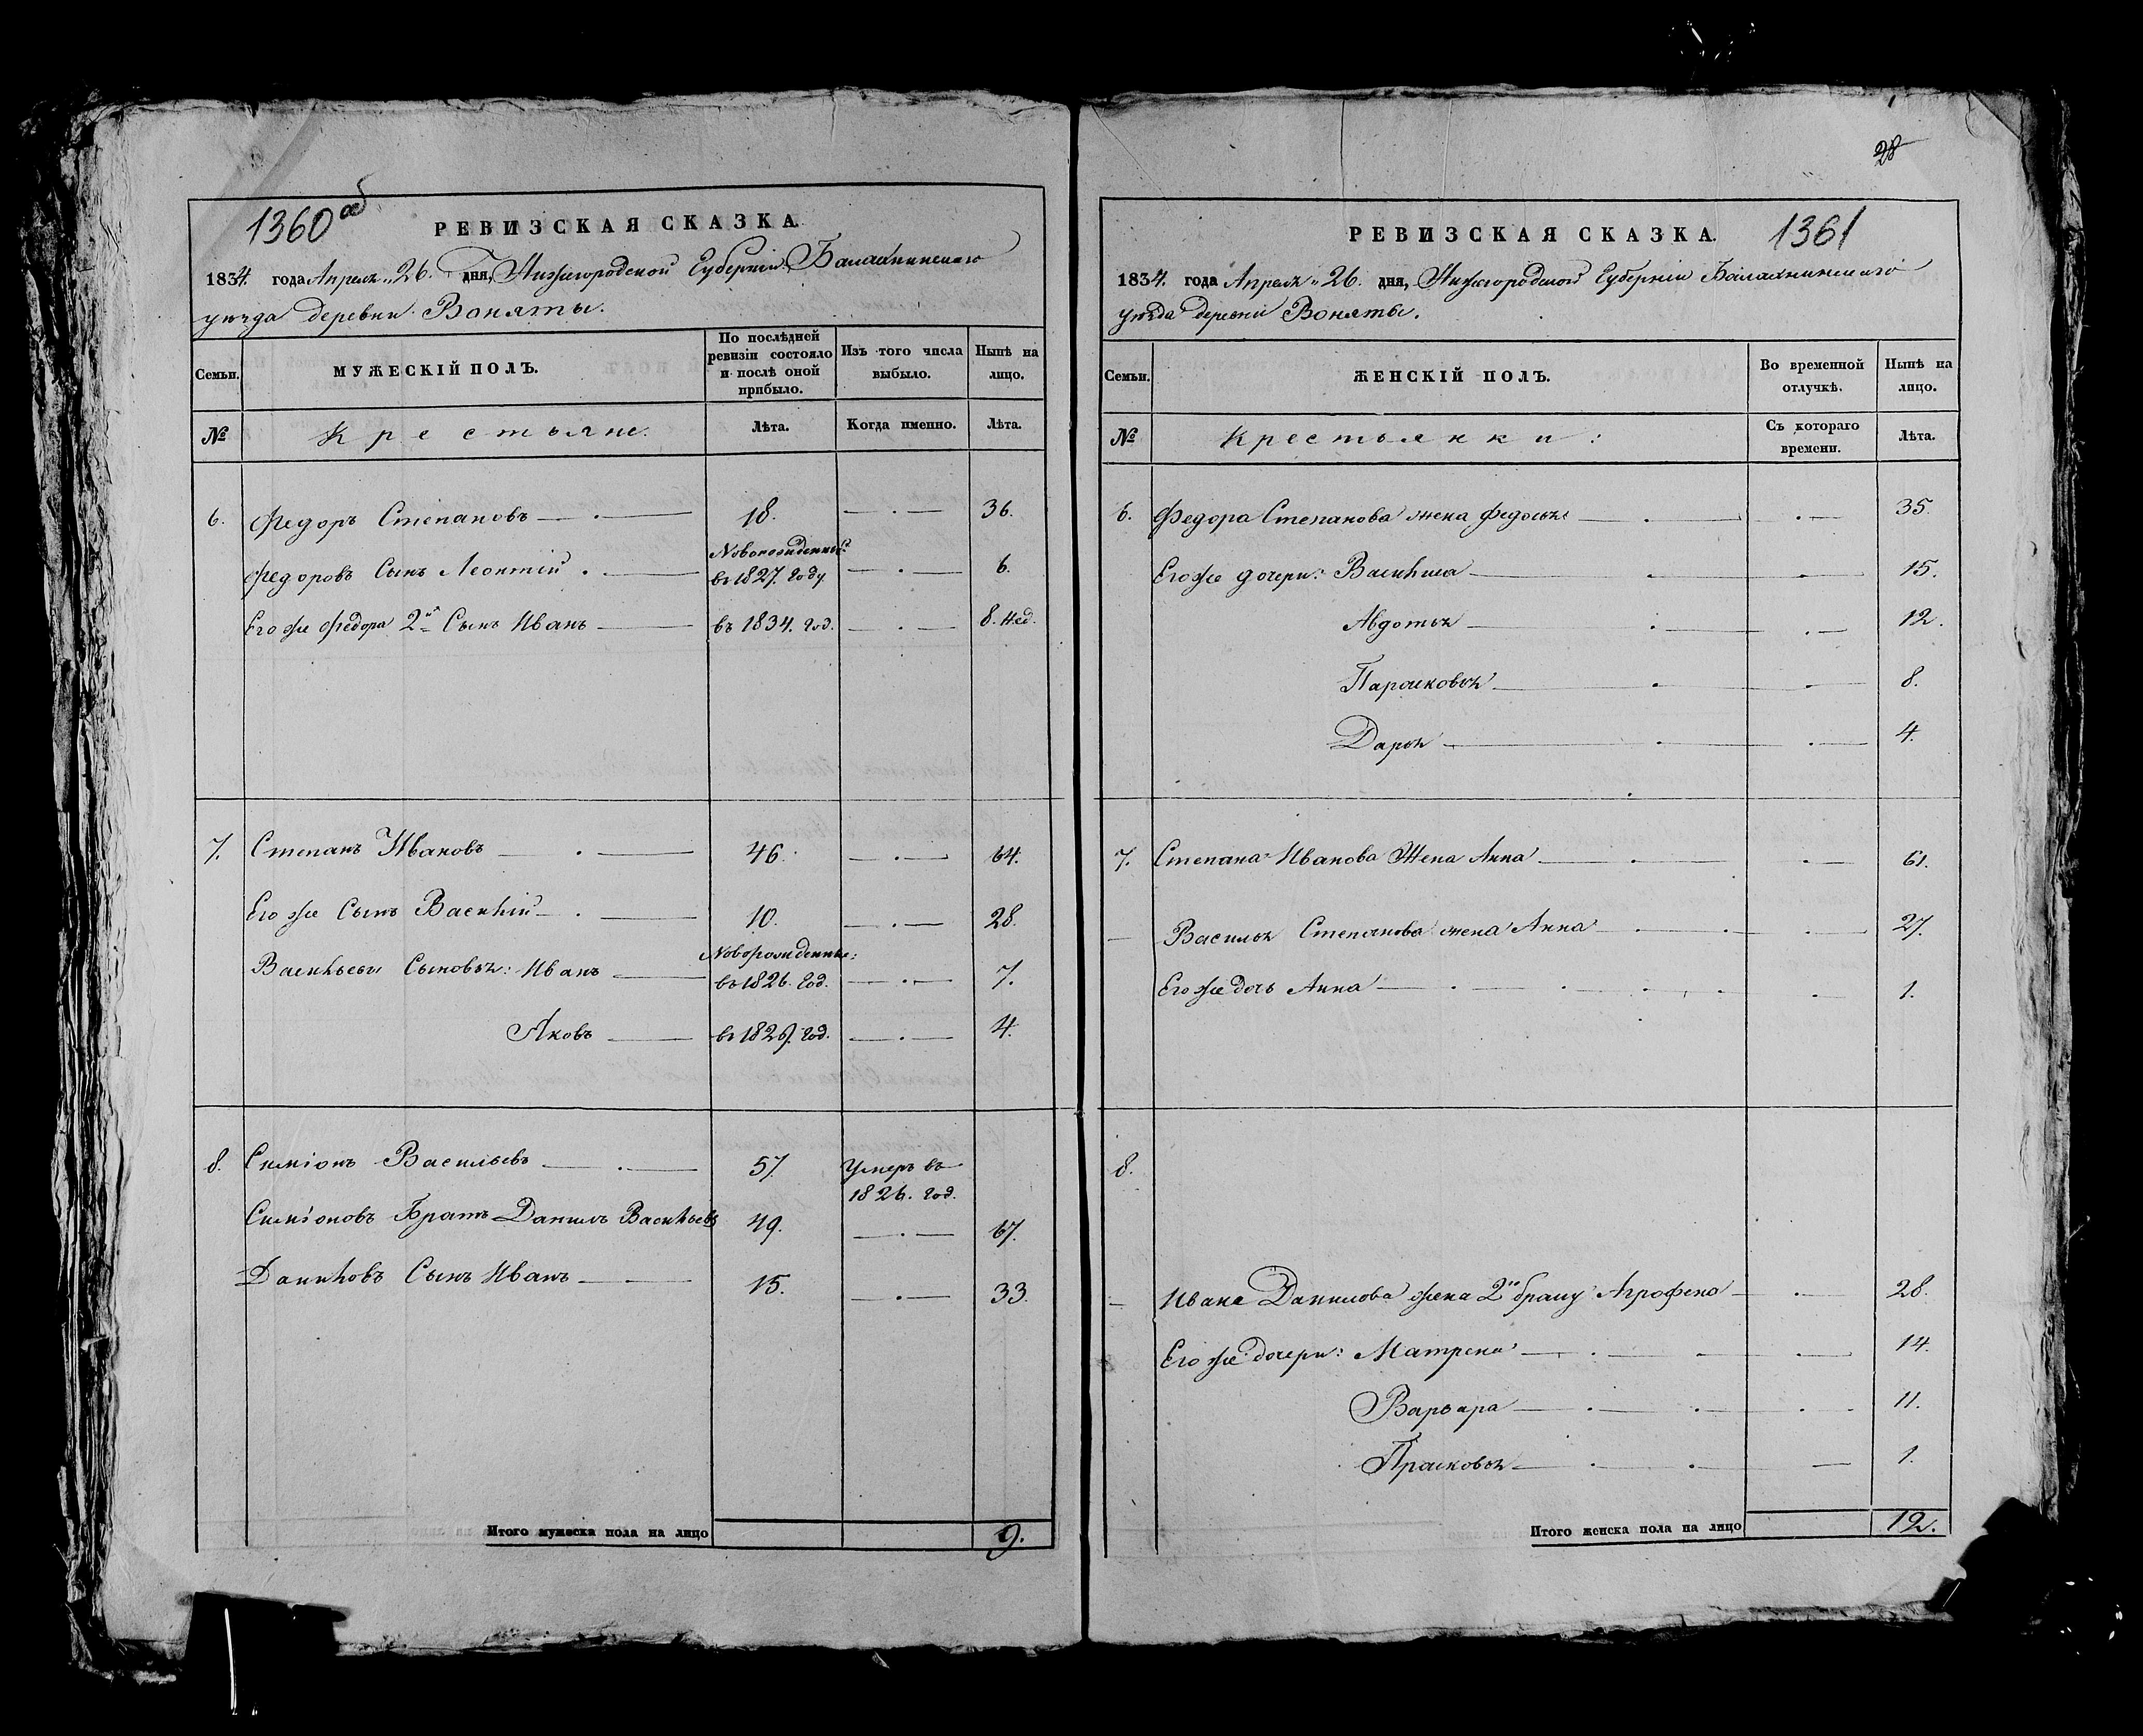 28
1360 об
РЕВИЗСКАЯ СКАЗКА.
1834. года Апреля „ 26. дня, Нижегородской Губерніи Балахнинскаго
уѣзда деревни Воняты.
Семьи. МУЖЕСКІЙ ПОЛЪ. По послѣдней ревизіи состояло и послѣ оной прибыло. Изъ того числа выбыло. Нынѣ на лицо.
№ Крестьяне. Лѣта. Когда именно. Лѣта.
6. Федоръ Степановъ 18. 36.
Федоровъ Сынъ Леонтій Новорожденные въ 1827. Году 6.
Его же Федора 2й Сынъ Иванъ въ 1834. год. 8. Нед.
7. Степанъ Ивановъ 46. 64.
Его же Сынъ Василій 10. 28.
Васильевы Сыновья: Иванъ Новорожденные: въ 1826. Год. 7.
Яковъ въ 1829. год. 4.
8. Симіонъ Васильевъ 57. Умеръ въ 1826. год.
Симіоновъ Братъ Данилъ Васильевъ 49. 67.
Даниловъ Сынъ Иванъ 15. 33.
Итого мужеска пола на лицо 9.
РЕВИЗСКАЯ СКАЗКА. 1361
1834. года Апреля „ 26. дня, Нижегородской Губерніи Балахнинскаго
уѣзда деревни Воняты.
Семьи. ЖЕНСКІЙ ПОЛЪ. Во временной отлучкѣ. Нынѣ на лицо.
№ Крестьянки: Съ котораго времени. Лѣта.
6. Федора Степанова жена Федосья 35.
Его же дочери: Василиса 15.
Авдотья 12.
Парасковья 8.
Дарья 4.
7. Степана Иванова Жена Анна 61.
Василья Степанова жена Анна 27.
Его же дочь Анна 1.
8.
Ивана Данилова жена 2го браку Агрофена 28.
Его же дочери: Матрена 14.
Варвара 11.
Прасковья 1.
Итого женска пола на лицо 12.